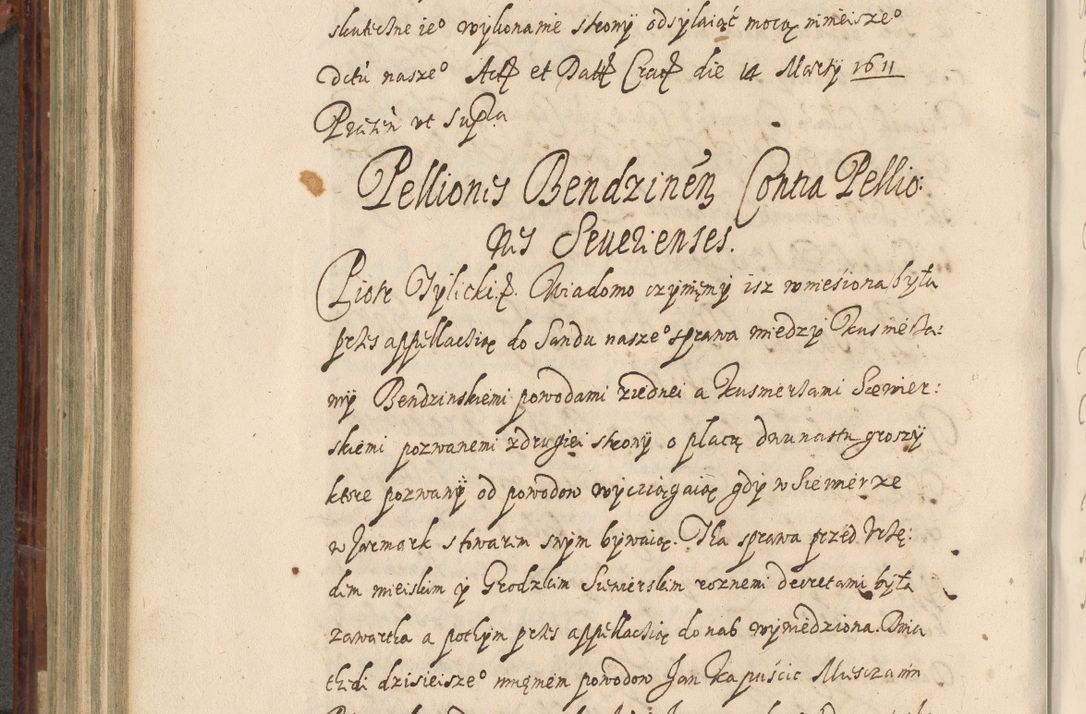 skuteczne ie° wykonanie strony odsyłaiąć mocą ninieisze°
dctú nasze° Act et Datt Crac die 14 Marty 1611
Præsen ut Supra
Pellionis Bendzinen Contra Pellio:
nis Seuerienses.
Piotr Tylicki. Wiadomo czyniemy isz wniesiona była
przes appellaciią do Sandu nasze° sprawa miedzy Kusnierza:
my Bendzinskiemi powodami ziednei a Kusnierzami Siewier:
skiemi pozwanemi zdrugiei strony o płacą dwunastu groszy
ktore pozwany od powodow wyciągaią gdy w Siewierze
w Jarmark stowarem swym bywaią. Tha sprawa przed Vrzę:
dem mieiskim y Grodzkim Siewierskim roznemi decretami była
zawartha a pothym przes appellaciią do nas wywiedziona. Dnia
thedi dzisieisze° imięniem powodow Jan Kapuścic Mieszczanin